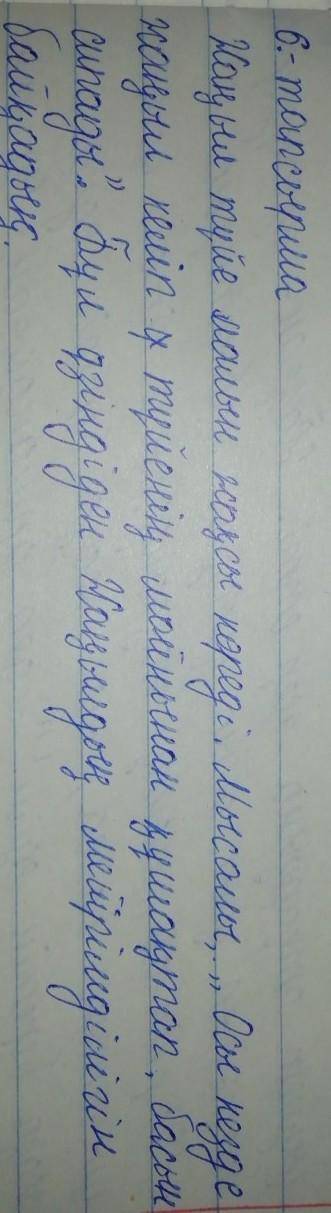 6.- тапсырма
Жаңыл түйе малын жақсы көреді. Мысалы, „ Осы кезде
жаңыл келіп түйенің мойнынан құшақтап, басын
сипады". Бұл үзіндіден Жаңылдың мейірімділігін
байқадық.